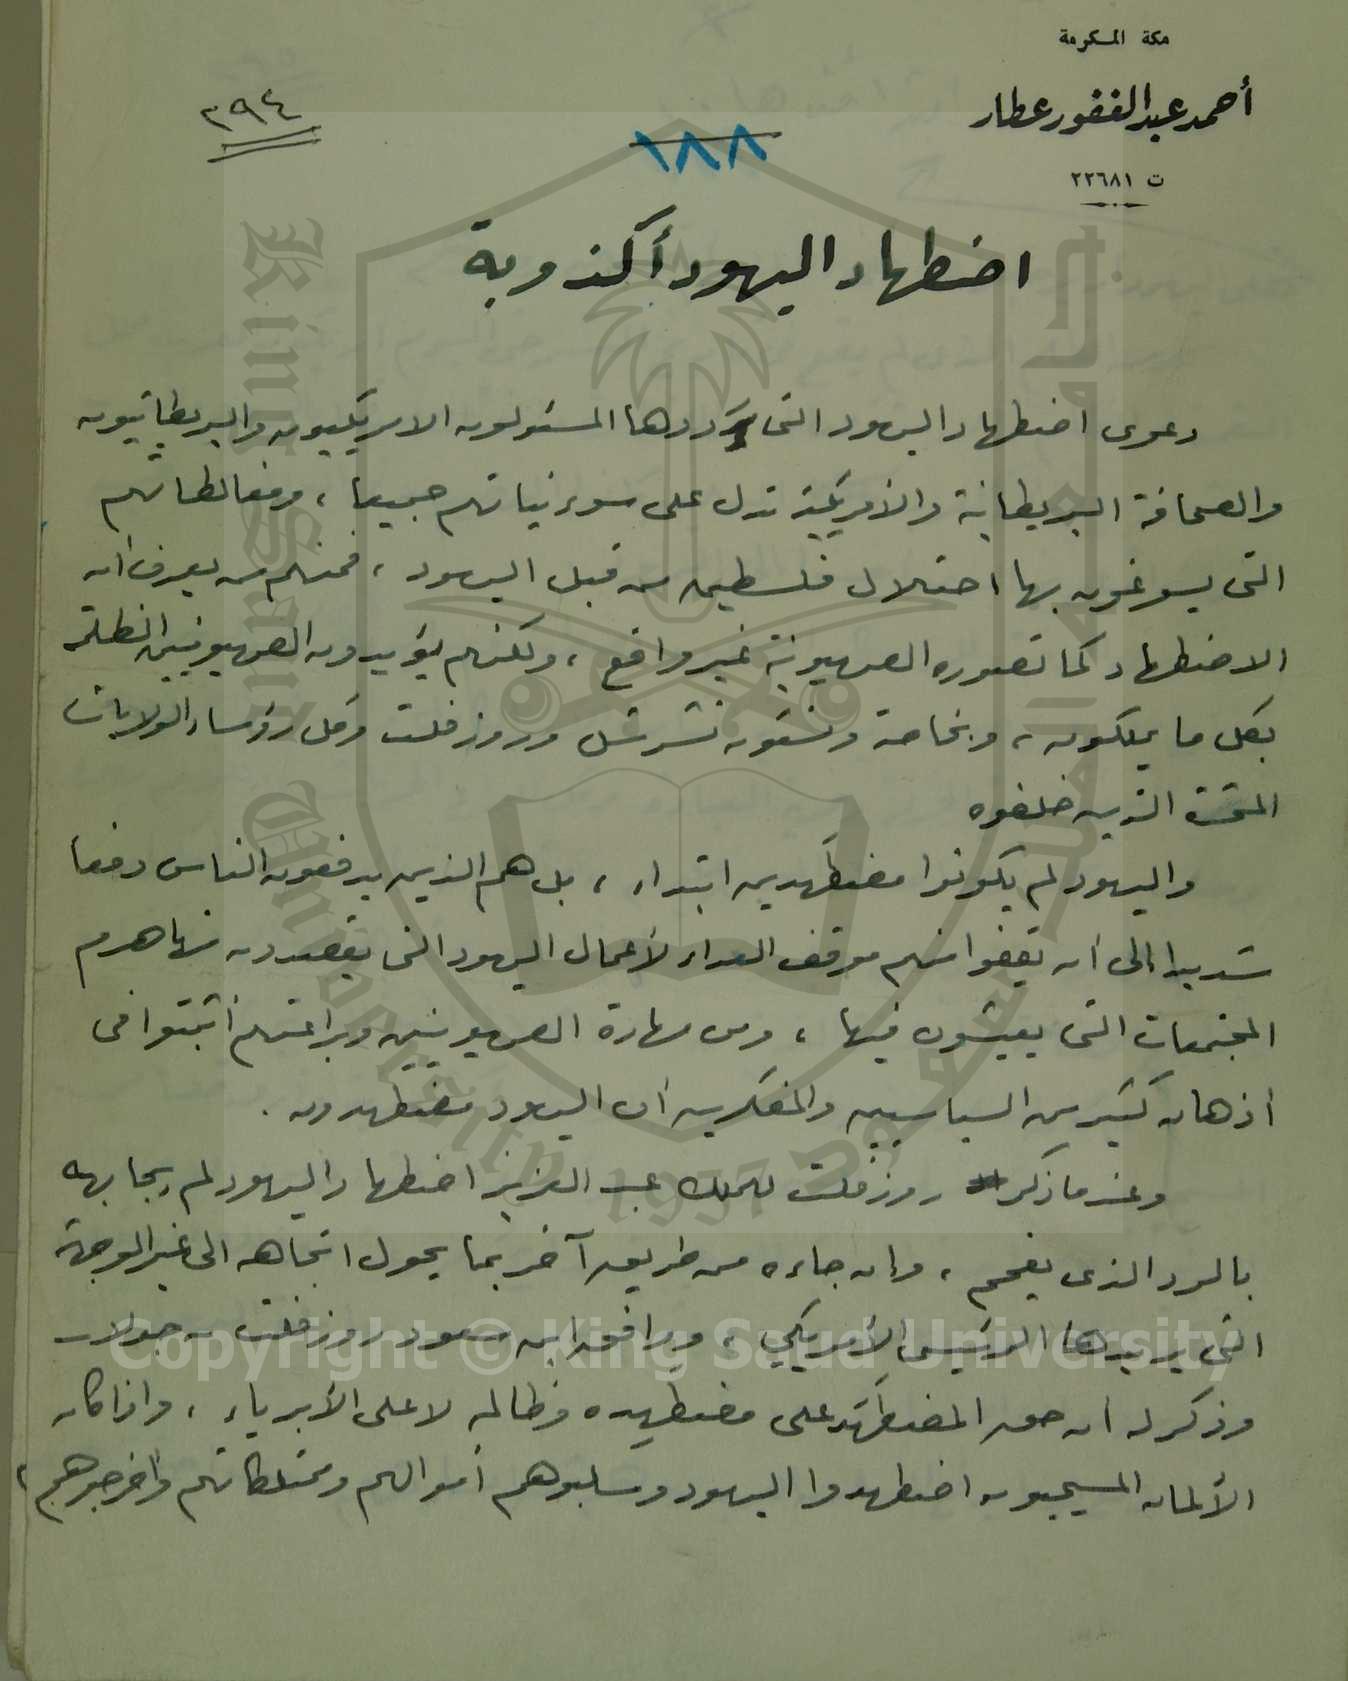 مكة المكرمة
أحمد عبد الغفور عطار
ت ٢٢٦٨١
٢٩٤
١٨٨
اضطهاد اليهود أكذوبة
دعوى اضطهاد اليهود التى يرددها المسئولون الامريكيون والبريطانيون
والصحافة البريطانية والأمريكية تدل على سوء نياتهم جميعا ، ومغالطاتهم
التى يسوغون بها احتلال فلسطين من قبل اليهود ، فمنهم من يعرف أن
الاضطهاد كما تصوره الصهيونية غير واقع ، ولكنهم يؤيدون الصهيونيين الظلمة
بكل ما يملكون ، وبخاصة ونستون تشرشل وروزفلت وكل رؤساء الولايات
المتحدة الذين خلفوه
واليهود لم يكونوا مضطَهدين ابتداء ، بل هم الذين يدفعون الناس دفعا
شديدا الى ان يقفوا منهم موقف العداء لأعمال اليهود التى يقصدون منها هدم
المجتمعات التى يعيشون فيها ، ومن مهارة الصهيونيين وبراعتهم أثبتوا فى
أذهان كثير من السياسيين والمفكرين أن اليهود مضطهدون .
وعندما ذكر روزفلت للملك عبد العزيز اضطهاد اليهود لم يجابهه
بالرد الذى يفحم ، وان جاءه من طريق آخر بما يحول اتجاهه الى غير الوجهة
التى يريدها الرئيس الأمريكي ، ويوافق ابن سعود روزفلت
وذكر له ان حق المضطَهَد على مضطهِده وظالمه لا على الأبرياء ، واذا كان
الألمان المسيحيون اضطهدوا اليهود وسلبوهم أموالهم وممتلكاتهم وأخرجوهم ،
King Saud University 1957
جامعة الملك سعود
Copyright © King Saud University